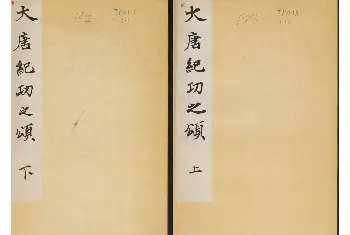 大唐紀功之頌 下
大唐紀功之頌 上